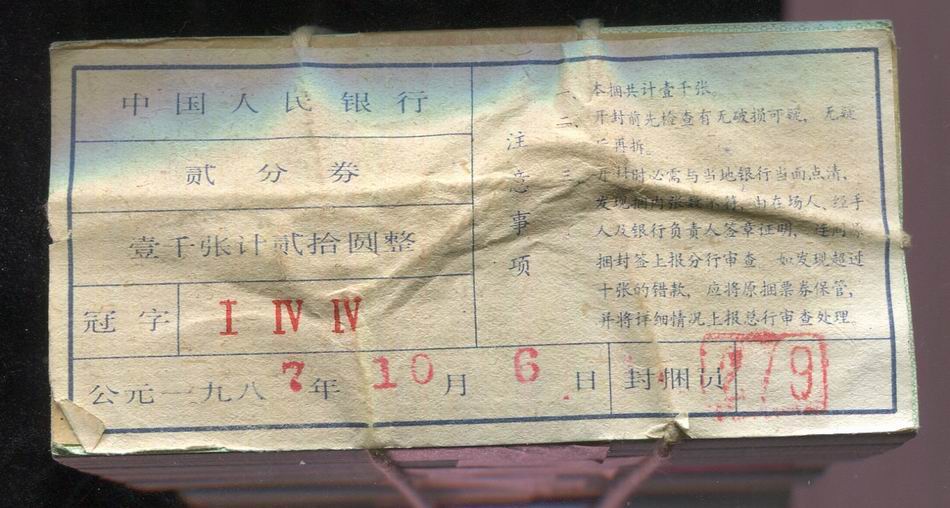 中国人民银行
贰分券
壹千张计贰拾圆整
冠字 I IV IV
公元一九八7年10月6日 封捆员 279
注意事项
一、本捆共计壹千张。
二、开封前先检查有无破损可疑，无疑
后再拆。
三、开封时必需与当地银行当面点清，
发现捆内张数不符，由在场人、经手
人及银行负责人签章证明，连同原
捆封签上报分行审查。如发现超过
十张的错款，应将原捆票券保管，
并将详细情况上报总行审查处理。